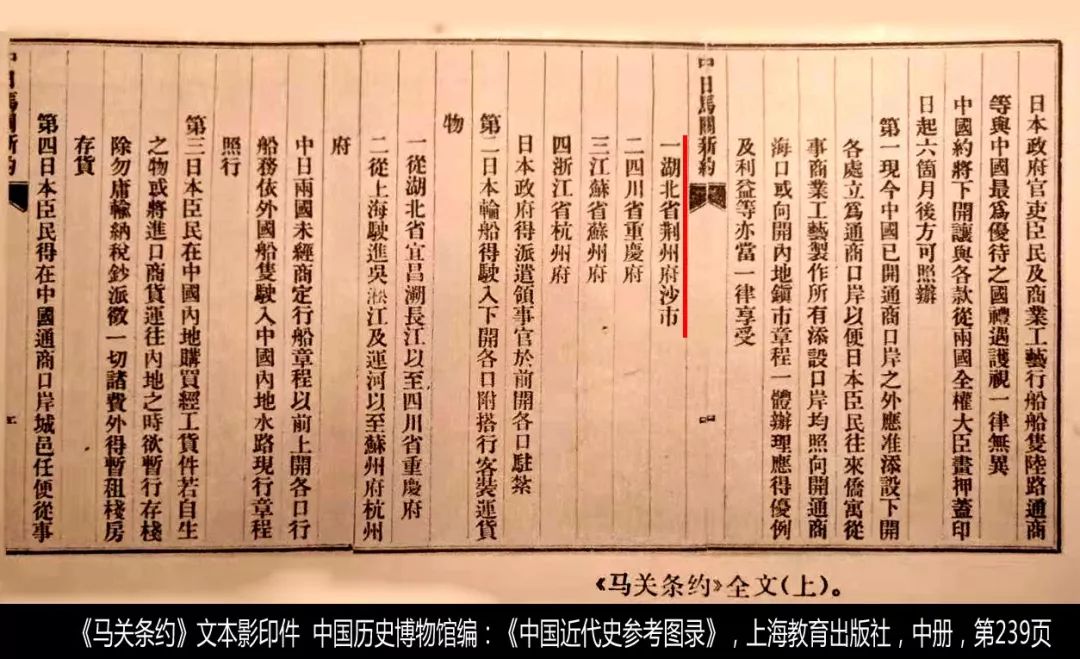 日本政府官吏臣民及商業工藝行船船隻陸路通商
等與中國最爲優待之國禮遇護視一律無異
中國約將下開讓與各款從兩國全權大臣畫押蓋印
日起六箇月後方可照辦
第一現今中國已開通商口岸之外應准添設下開
各處立爲通商口岸以便日本臣民往來僑寓從
事商業工藝製作所有添設口岸均照向開通商
海口或向開內地鎭市章程一體辦理應得優例
及利益等亦當一律享受
中日馬關新約
一湖北省荆州府沙市
二四川省重慶府
三江蘇省蘇州府
四浙江省杭州府
日本政府得派遣領事官於前開各口駐紮
第二日本輪船得駛入下開各口附搭行客裝運貨
物
一從湖北省宜昌溯長江以至四川省重慶府
二從上海駛進吳淞江及運河以至蘇州府杭州
府
中日兩國未經商定行船章程以前上開各口行
船務依外國船隻駛入中國內地水路現行章程
照行
第三日本臣民在中國內地購買經工貨件若自生
之物或將進口商貨運往內地之時欲暫行存棧
除勿庸輸納稅鈔派徵一切諸費外得暫租棧房
存貨
第四日本臣民得在中國通商口岸城邑任便從事
中日馬關新約
《马关条约》全文(上)。
《马关条约》文本影印件 中国历史博物馆编：《中国近代史参考图录》，上海教育出版社，中册，第239页